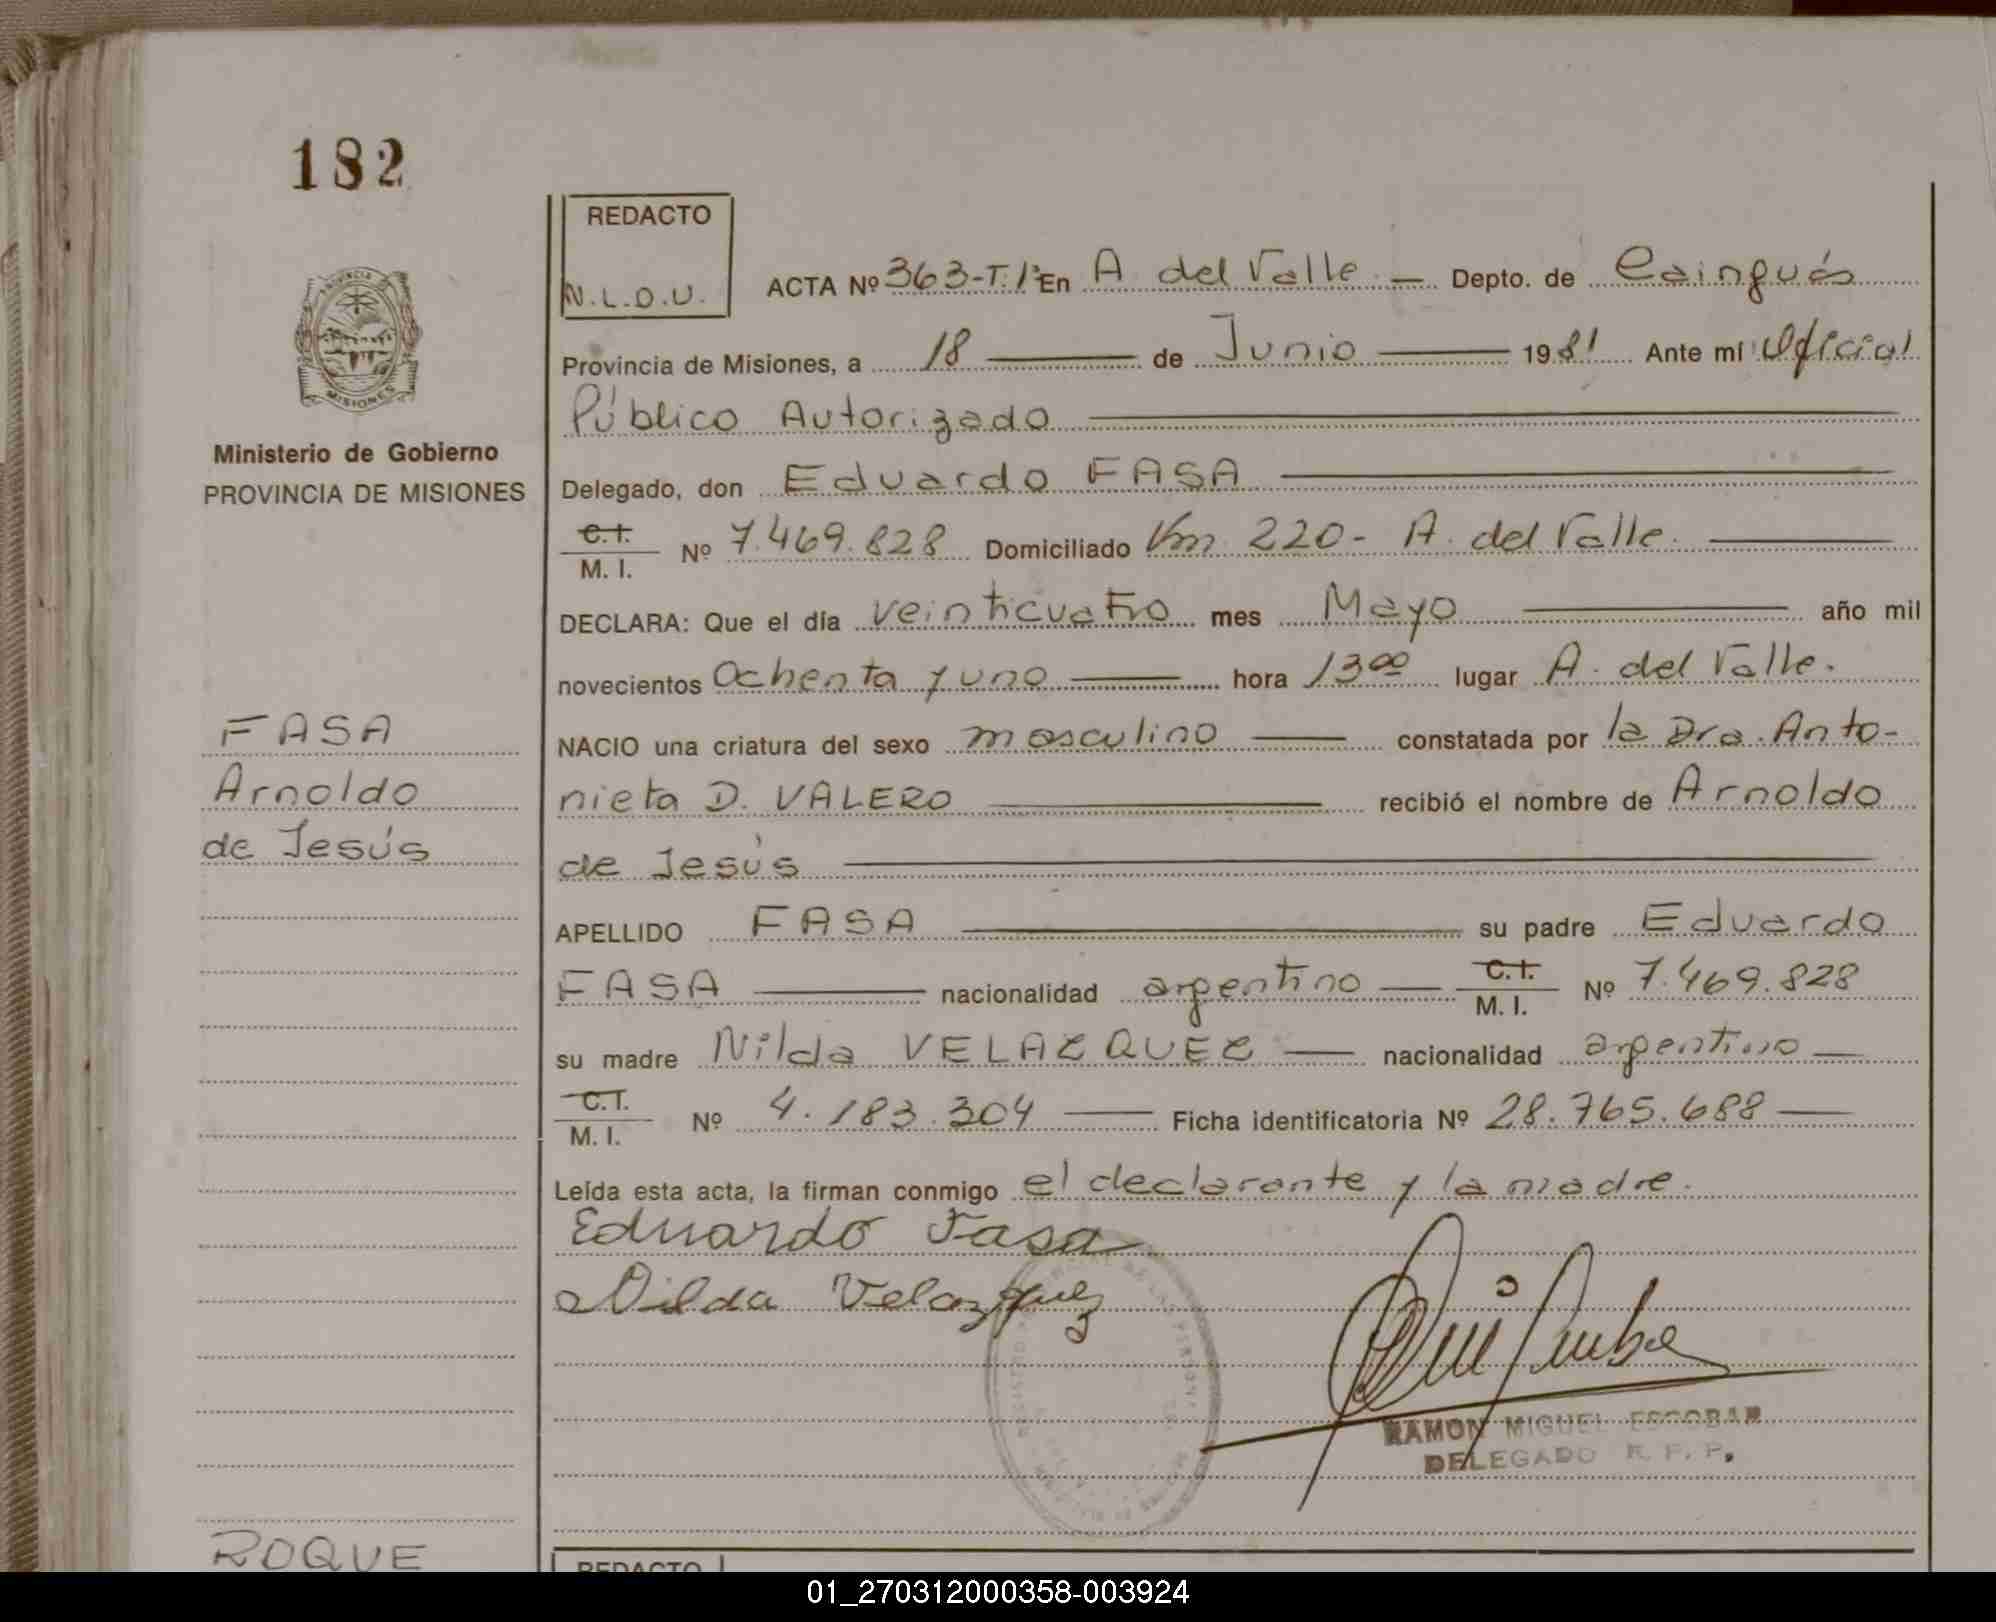 182
REDACTO
N.L.D.U.
PROVINCIA
MISIONES
Ministerio de Gobierno
PROVINCIA DE MISIONES
ACTA Nº 363-T.1º En A. del Valle — Depto. de Cainguás
Provincia de Misiones, a 18 — de Junio — 1981 Ante mí Oficial
Público Autorizado
Delegado, don Eduardo FASA
C.I.
M. I. Nº 7.469.828 Domiciliado Km 220- A. del Valle.
DECLARA: Que el día veinticuatro mes Mayo — año mil
novecientos Ochenta y uno — hora 13⁰⁰ lugar A. del Valle.
NACIO una criatura del sexo masculino — constatada por la Dra. Anto-
nieta D. VALERO — recibió el nombre de Arnoldo
de Jesús
APELLIDO FASA — su padre Eduardo
FASA — nacionalidad argentino — C.I.
M. I. Nº 7.469.828
su madre Nilda VELAZQUEZ — nacionalidad argentino —
C.I.
M. I. Nº 4.183.304 — Ficha identificatoria Nº 28.765.688 —
Leída esta acta, la firman conmigo el declarante y la madre.
Eduardo Fasa
Nilda Velazquez
RAMON MIGUEL ESCOBAR
DELEGADO R. P. P.
FASA
Arnoldo
de Jesús
ROQUE
REDACTO
01_270312000358-003924